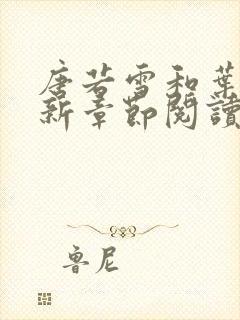 唐若雪和葉
新章節閱讀
魯尼